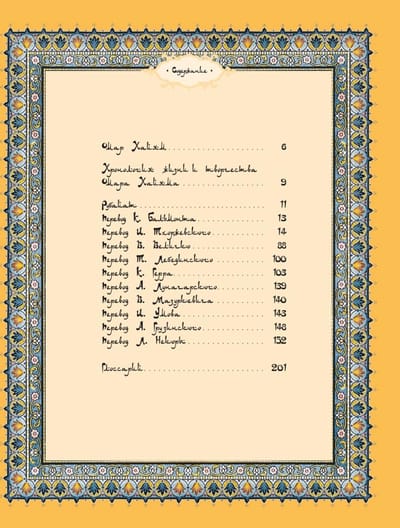 • Содержание •
Омар Хайям 6
Хронология жизни и творчества
Омара Хайяма 9
Рубайат 11
Перевод К. Бальмонта 13
Перевод И. Тхоржевского 14
Перевод В. Величко 88
Перевод Т. Лебединского 100
Перевод К. Герра 103
Перевод А. Луначарского 139
Перевод В. Мазуркевича 140
Перевод И. Умова 143
Перевод А. Грузинского 148
Перевод Л. Некоры 152
Глоссарий 201